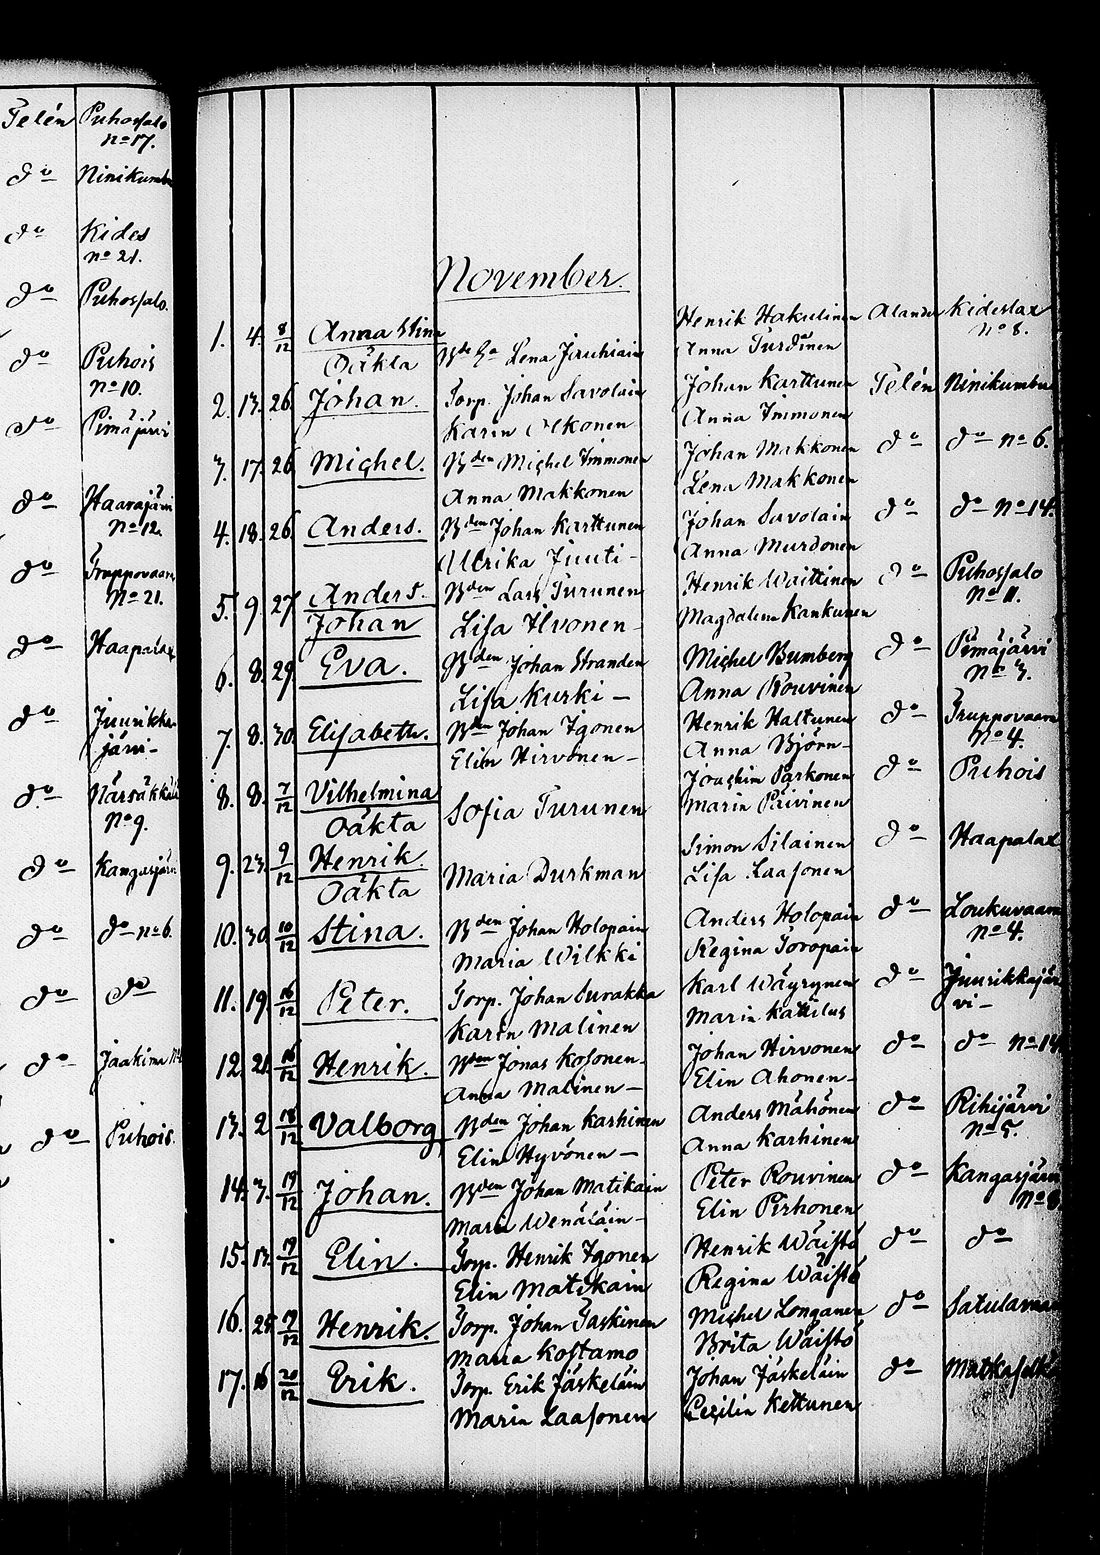 Telén Puhossalo
no 17.
do Ninikumbu
do Kides
no 21.
do Puhossalo.
do Puhois
no 10.
do Pimäjärvi
do Haarajärvi
no 12.
do Truppovaara
No 21.
do Haapalax
do Juurikka-
järvi-
do Närsäkkälä
No 9.
do Kangasjärvi
do do no 6.
do do
do Jaakima
do Puhois.
November.
1. 4. 8/12 Anna Stina
Oäkta
Lena
Henrik Hakulinen
Anna Turdinen
Kideslax
no 8.
2. 13. 26. Johan.
Torp. Johan Savolain
Karin Olkonen
Johan Karttunen
Anna Immonen
Telén Ninikumbu
3. 17. 26 Michel.
Bden Michel Immonen
Anna Makkonen
Johan Makkonen
Lena Makkonen
do do no 6.
4. 18. 26. Anders.
Bden Johan Karttunen
Ulrika Juuti-
Johan Savolain
Anna Murdonen
do do no 14.
5. 9. 27 Anders.
Johan
Bden Lars Turunen
Lisa Ilvonen-
Henrik Waittinen
Magdalena Kankunen
do Puhossalo
no 11.
6. 8. 29. Eva.
Bden Johan Stranden
Lisa Kurki -
Michel Bumberg
Anna Rouvinen
do Pimäjärvi
no 3.
7. 8. 30. Elisabeth.
Bden Johan Igonen
Elin Hirvonen-
Henrik Haltunen
Anna Björn-
do Truppovaara
No 4.
8. 8. 7/12 Vilhelmina
Oäkta
Sofia Turunen
Joachim Parkonen
Maria Päivinen
do Puhois
9. 23. 9/12 Henrik.
Oäkta
Maria Durkman
Simon Silainen
Lisa Laasonen
do Haapalax
10. 30. 10/12 Stina.
Bden Johan Holopain
Maria Wilkki
Anders Holopain
Regina Toropain
do Loukuvaara
no 4.
11. 19. 16/12 Peter.
Torp. Johan Surakka
Karin Malinen
Karl Wäyrynen
Maria Kattilus
do Juurikkajär
vi-
12. 21. 16/12 Henrik.
Bden Jonas Kosonen-
Anna Malinen-
Johan Hirvonen
Elin Ahonen-
do do no 14
13. 2. 18/12 Valborg.
Bden Johan Karhinen
Elin Hyvönen -
Anders Mähönen
Anna Karhinen
do Rihijärvi
no 5.
14. 3. 19/12 Johan.
Bden Johan Matikain
Maria Wenäläin-
Peter Rouvinen
Elin Pirhonen
do Kangasjärvi
no 8.
15. 13. 19/12 Elin.
Torp. Henrik Igonen
Elin Matikain
Henrik Wäistö
Regina Wäistö
do do
16. 25. 19/12 Henrik.
Torp. Johan Taskinen
Maria Kostamo
Michel Longanen
Brita Wäistö
do Satulavaara
17. 16 20/12 Erik.
Torp. Erik Jäskeläin
Maria Laasonen
Johan Jäskeläin
Cecilia Kettunen
do Matkaselkä